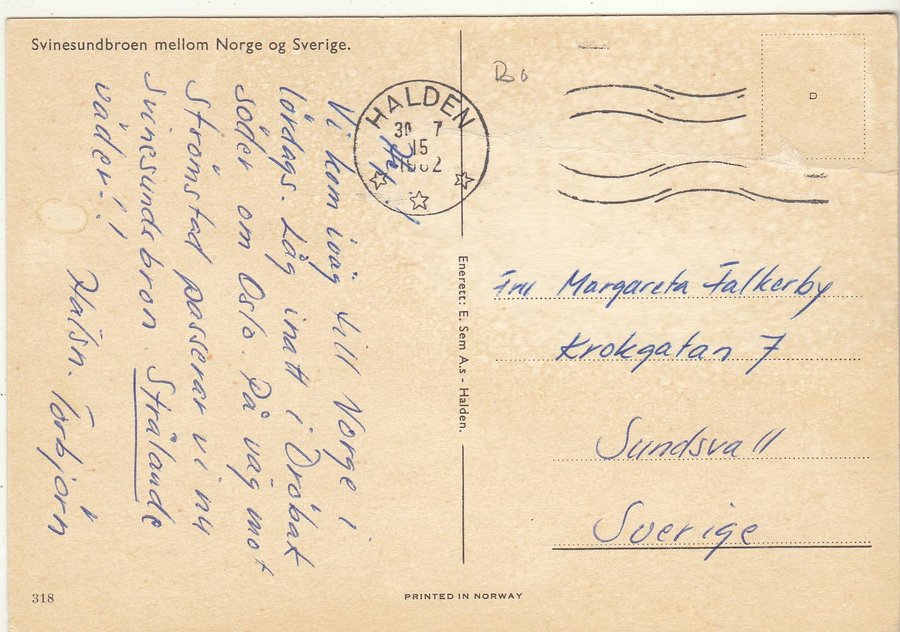 Svinesundbroen mellom Norge og Sverige.
Hej!
Vi kom iväg till Norge i
lördags. Låg inatt i Dröbak
söder om Oslo. På väg mot
Strömstad passerar vi nu
Svinesundsbron. Strålande
väder-!
Hälsn. Torbjörn
HALDEN
30 7
15
Enerett: E. Sem A.s - Halden.
Bo
D
Fru Margareta Falkerby
Krokgatan 7
Sundsvall
Sverige
318
PRINTED IN NORWAY